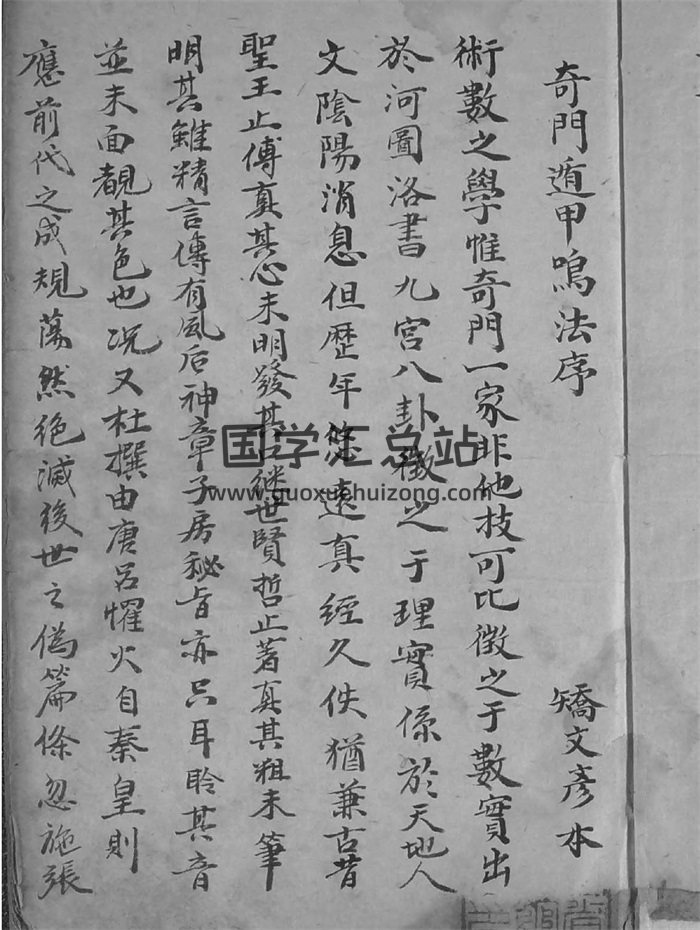 奇門遁甲鳴法序
矯文彥本
術數之學惟奇門一家非他技可比徵之于數實出
於河圖洛書九宮八卦徵之于理實係於天地人
文陰陽消息但歷年悠遠真經久佚猶兼古昔
聖王止傳真其心未明發其口繼世賢哲止著真其粗未筆
明其雖精言傳有風后神章子房秘旨亦只耳聆其音
並未面覩其色也况又杜撰由唐呂懼火自秦皇則
應前代之成規蕩然絶滅後世之偽篇條忽施張
国学汇总站
www.guoxuehuizong.com